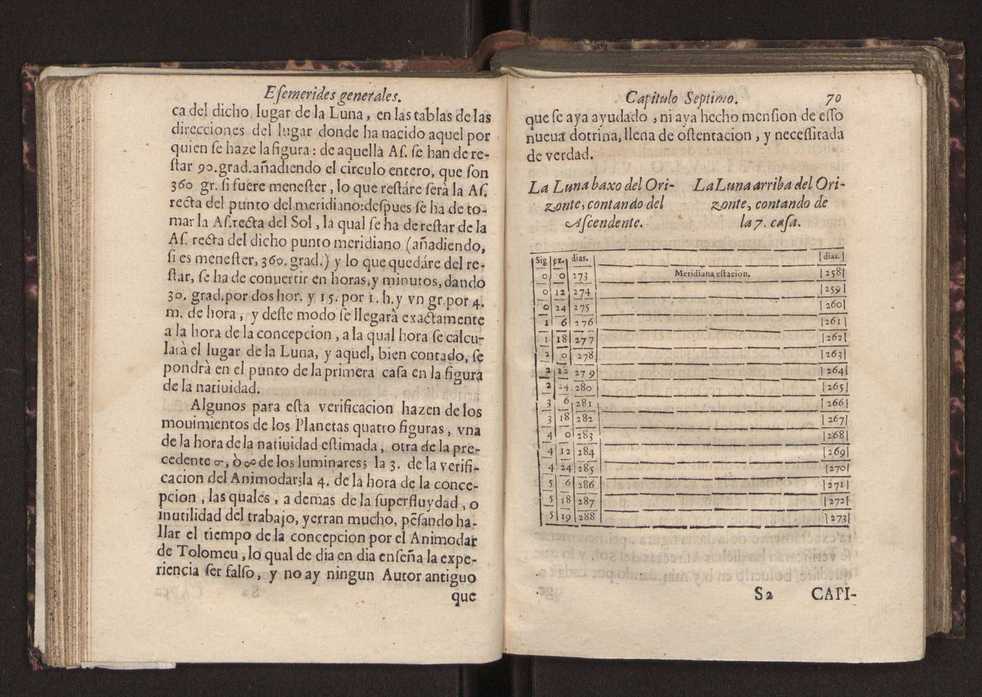 Efemerides generales.
ca del dicho lugar de la Luna, en las tablas de las
direcciones del lugar donde ha nacido aquel por
quien se haze la figura: de aquella As. se han de re-
star 90. grad. añadiendo el circulo entero, que son
360 gr. si fuere menester, lo que restáre serà la As.
recta del punto del meridiano: despues se ha de to-
mar la As. recta del Sol, la qual se ha de restar de la
As. recta del dicho punto meridiano (añadiendo,
si es menester, 360. grad.) y lo que quedáre del re-
star, se ha de convertir en horas, y minutos, dando
30. grad. por dos hor. y 15. por 1. h. y vn gr. por 4.
m. de hora, y deste modo se llegarà exactamente
a la hora de la concepcion, a la qual hora se calcu-
larà el lugar de la Luna, y aquel, bien contado, se
pondrà en el punto de la primera casa en la figura
de la natiuidad.
Algunos para esta verificacion hazen de los
mouimientos de los Planetas quatro figuras, vna
de la hora de la natiuidad estimada, otra de la pre-
cedente ☌, ò ☍ de los luminares; la 3. de la verifi-
cacion del Animodar; la 4. de la hora de la conce-
pcion, las quales, a demas de la superfluydad, o
inutilidad del trabajo, yerran mucho, pẽsando ha-
llar el tiempo de la concepcion por el Animodar
de Tolomeu, lo qual de dia en dia enseña la expe-
riencia ser falso, y no ay ningun Autor antiguo
que
Capitulo Septimo. 70
que se aya ayudado, ni aya hecho mension de esso
nueua dotrina, llena de ostentacion, y necessitada
de verdad.
La Luna baxo del Ori-
zonte, contando del
Ascendente.
La Luna arriba del Ori-
zonte, contando de
la 7. casa.
Sig. gr. dias. dias.
0 0 273 Meridiana estacion. 258
0 12 274 259
0 24 275 260
1 6 276 261
1 18 277 262
2 0 278 263
2 12 279 264
2 24 280 265
3 6 281 266
3 18 282 267
4 0 283 268
4 12 284 269
4 24 285 270
5 6 286 271
5 18 287 272
5 19 288 273
S2 CAPI-